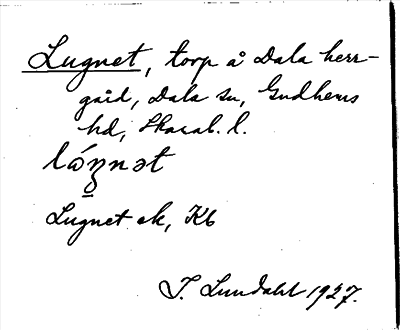 Lugnet, torp å Dala herr-
gård, Dala sn, Gudhems
hd, Skarab. l.
Lugnet ek, Kb
I. Lundahl 1927.